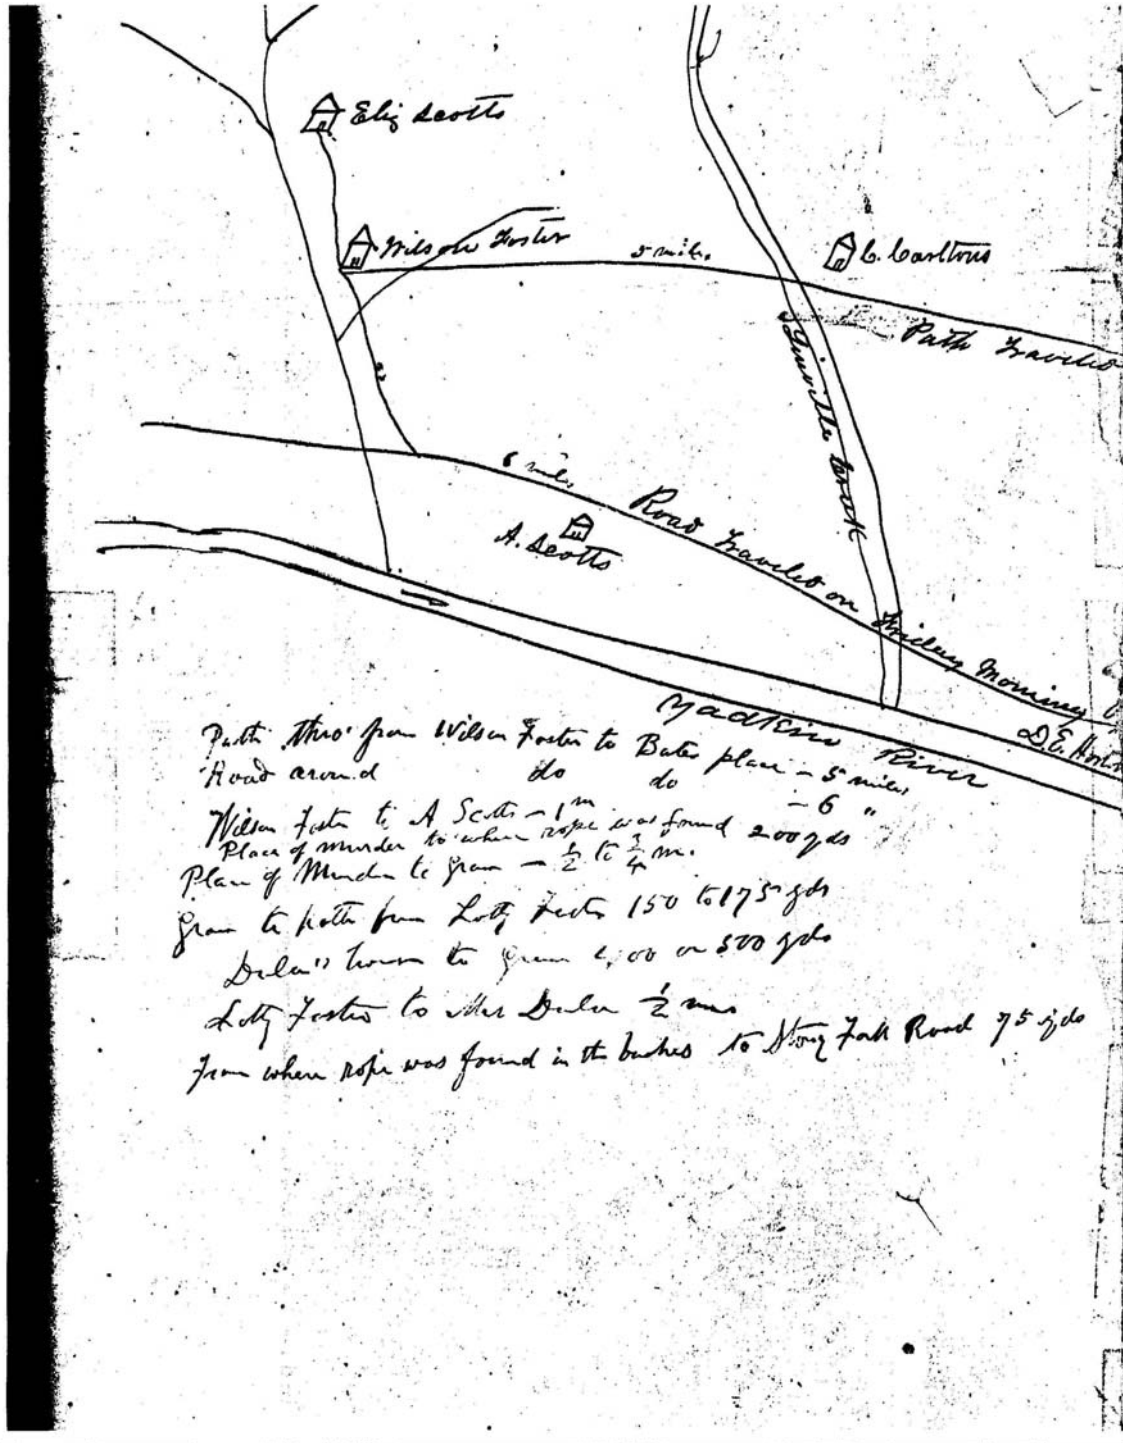 Eliz Scotts
Wilson Foster
5 miles
C. Carltons
Path Traveled
6 miles
Road Traveled on Friday Morning
A. Scotts
Creek
Yadkin River
D.E. Horton
Path thro' from Wilson Foster to Bates place – 5 miles
Road around do do – 6 "
Wilson Foster to A Scotts – 1 m
Place of murder to where rope was found 200 yds
Place of Murder to grave – ½ to ¾ m.
Grave to path from Lotty Foster 150 to 175 yds
house to grave or 500 yds
Lotty Foster to Mrs Dula ½ mile
From where rope was found in the bushes to Stony Fork Road 75 yds